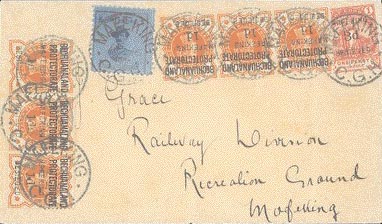 MAFEKING
C.G.H.
BECHUANALAND
PROTECTORATE
MAFEKING
1d
BECHUANALAND
PROTECTORATE
MAFEKING
1d
BECHUANALAND
PROTECTORATE
MAFEKING
1d
3d
BECHUANALAND
PROTECTORATE
BECHUANALAND
PROTECTORATE
BECHUANALAND
PROTECTORATE
MAFEKING
Grace
Railway Division
Recreation Ground
Mafeking